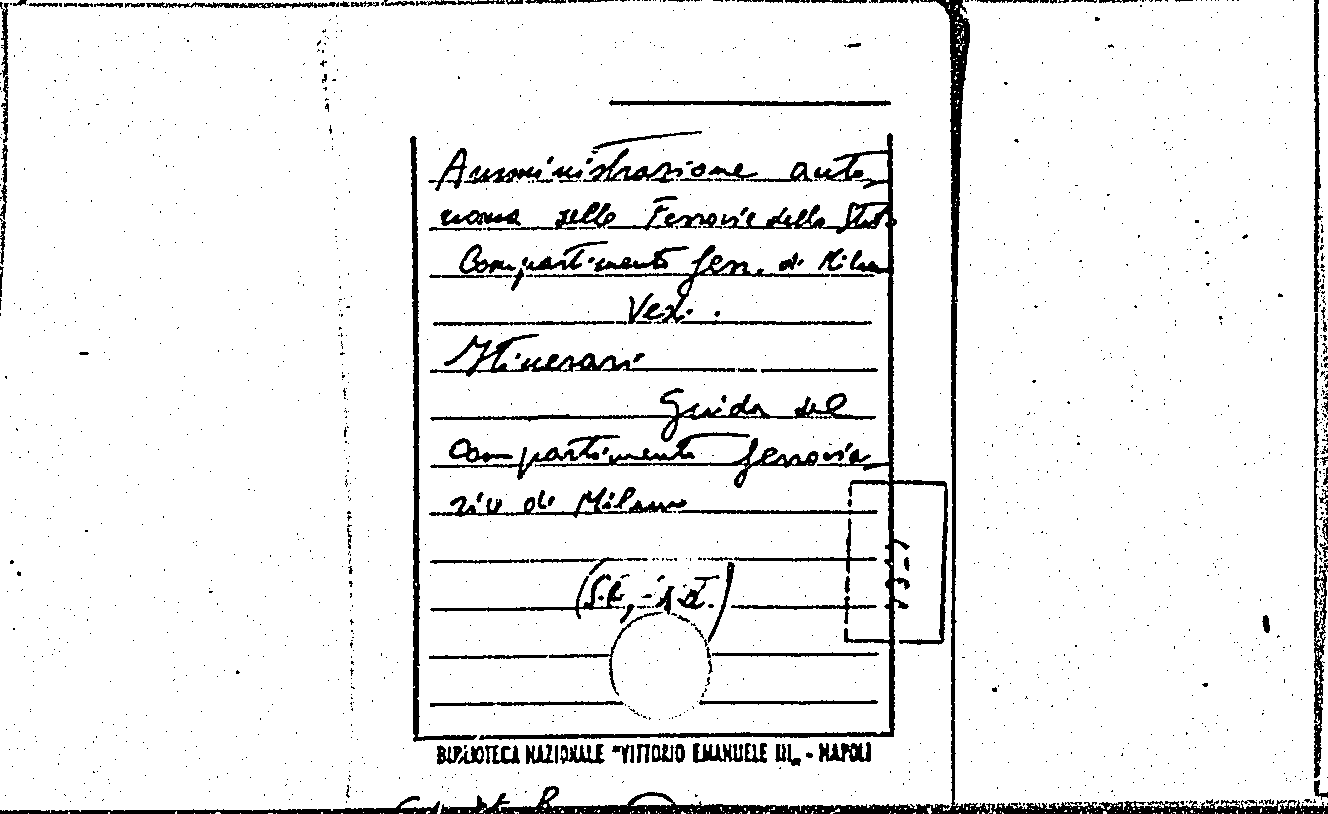 Amministrazione auto
noma delle Ferrovie dello Stato
Compartimento ferr. di Milano
Ved.
Itinerari
Guida del
Compartimento ferrovia
rio di Milano
(S.l., s.d.)
BIBLIOTECA NAZIONALE "VITTORIO EMANUELE III„ - NAPOLI